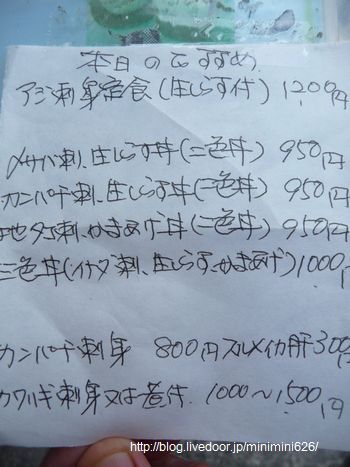 本日のおすすめ
アジ刺身定食(生しらす付) 1,200円
〆サバ刺、生しらす丼(二色丼) 950円
カンパチ刺、生しらす丼(二色丼) 950円
地ダコ刺、かまあげ丼(二色丼) 950円
三色丼(イナダ刺、生しらす、かまあげ) 1,000円
カンパチ刺身 800円 スルメイカ肝 300円
カワハギ刺身又は煮付 1000〜1,500円
http://blog.livedoor.jp/minimini626/